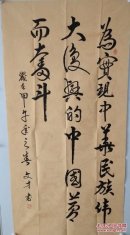 為實現中華民族偉
大復興的中國夢
而奮斗
歲在甲午年之春文才書